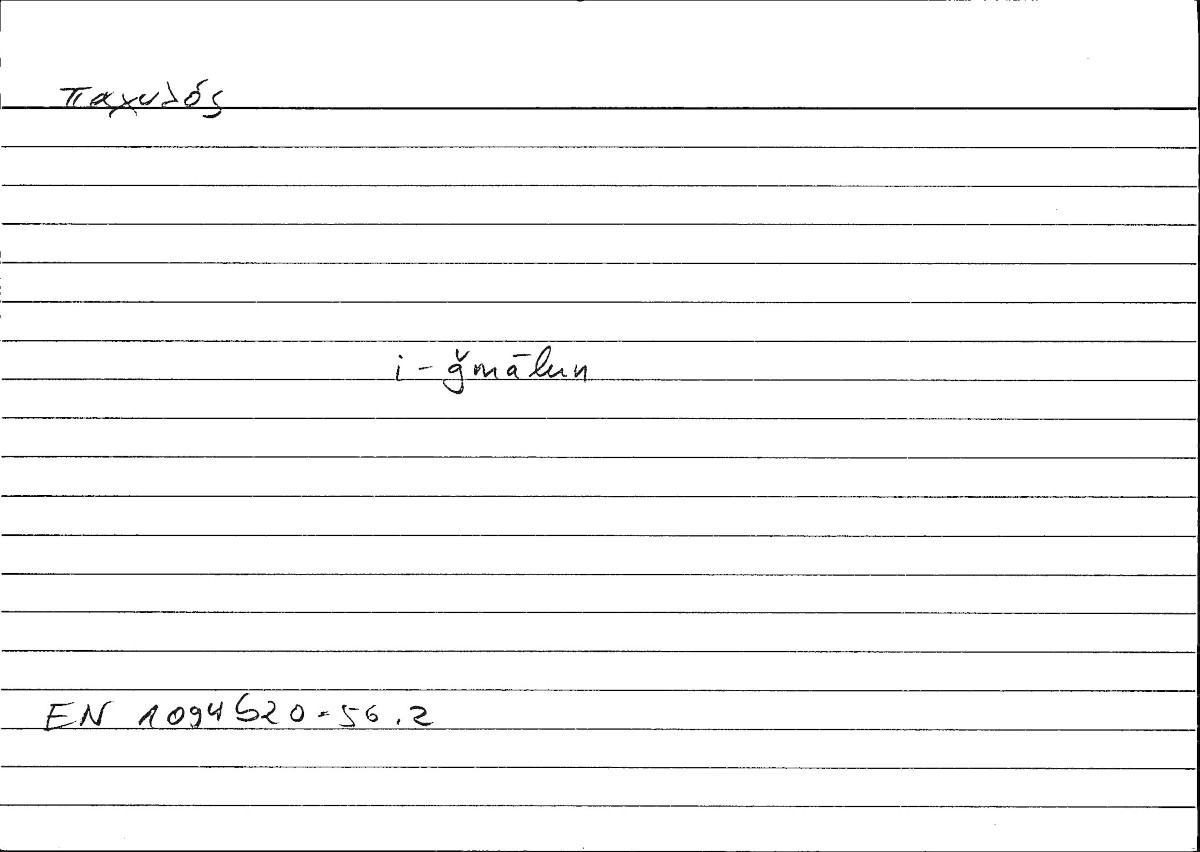 παχυλός
i - ǧmālun
EN 1094b20 = 56.2